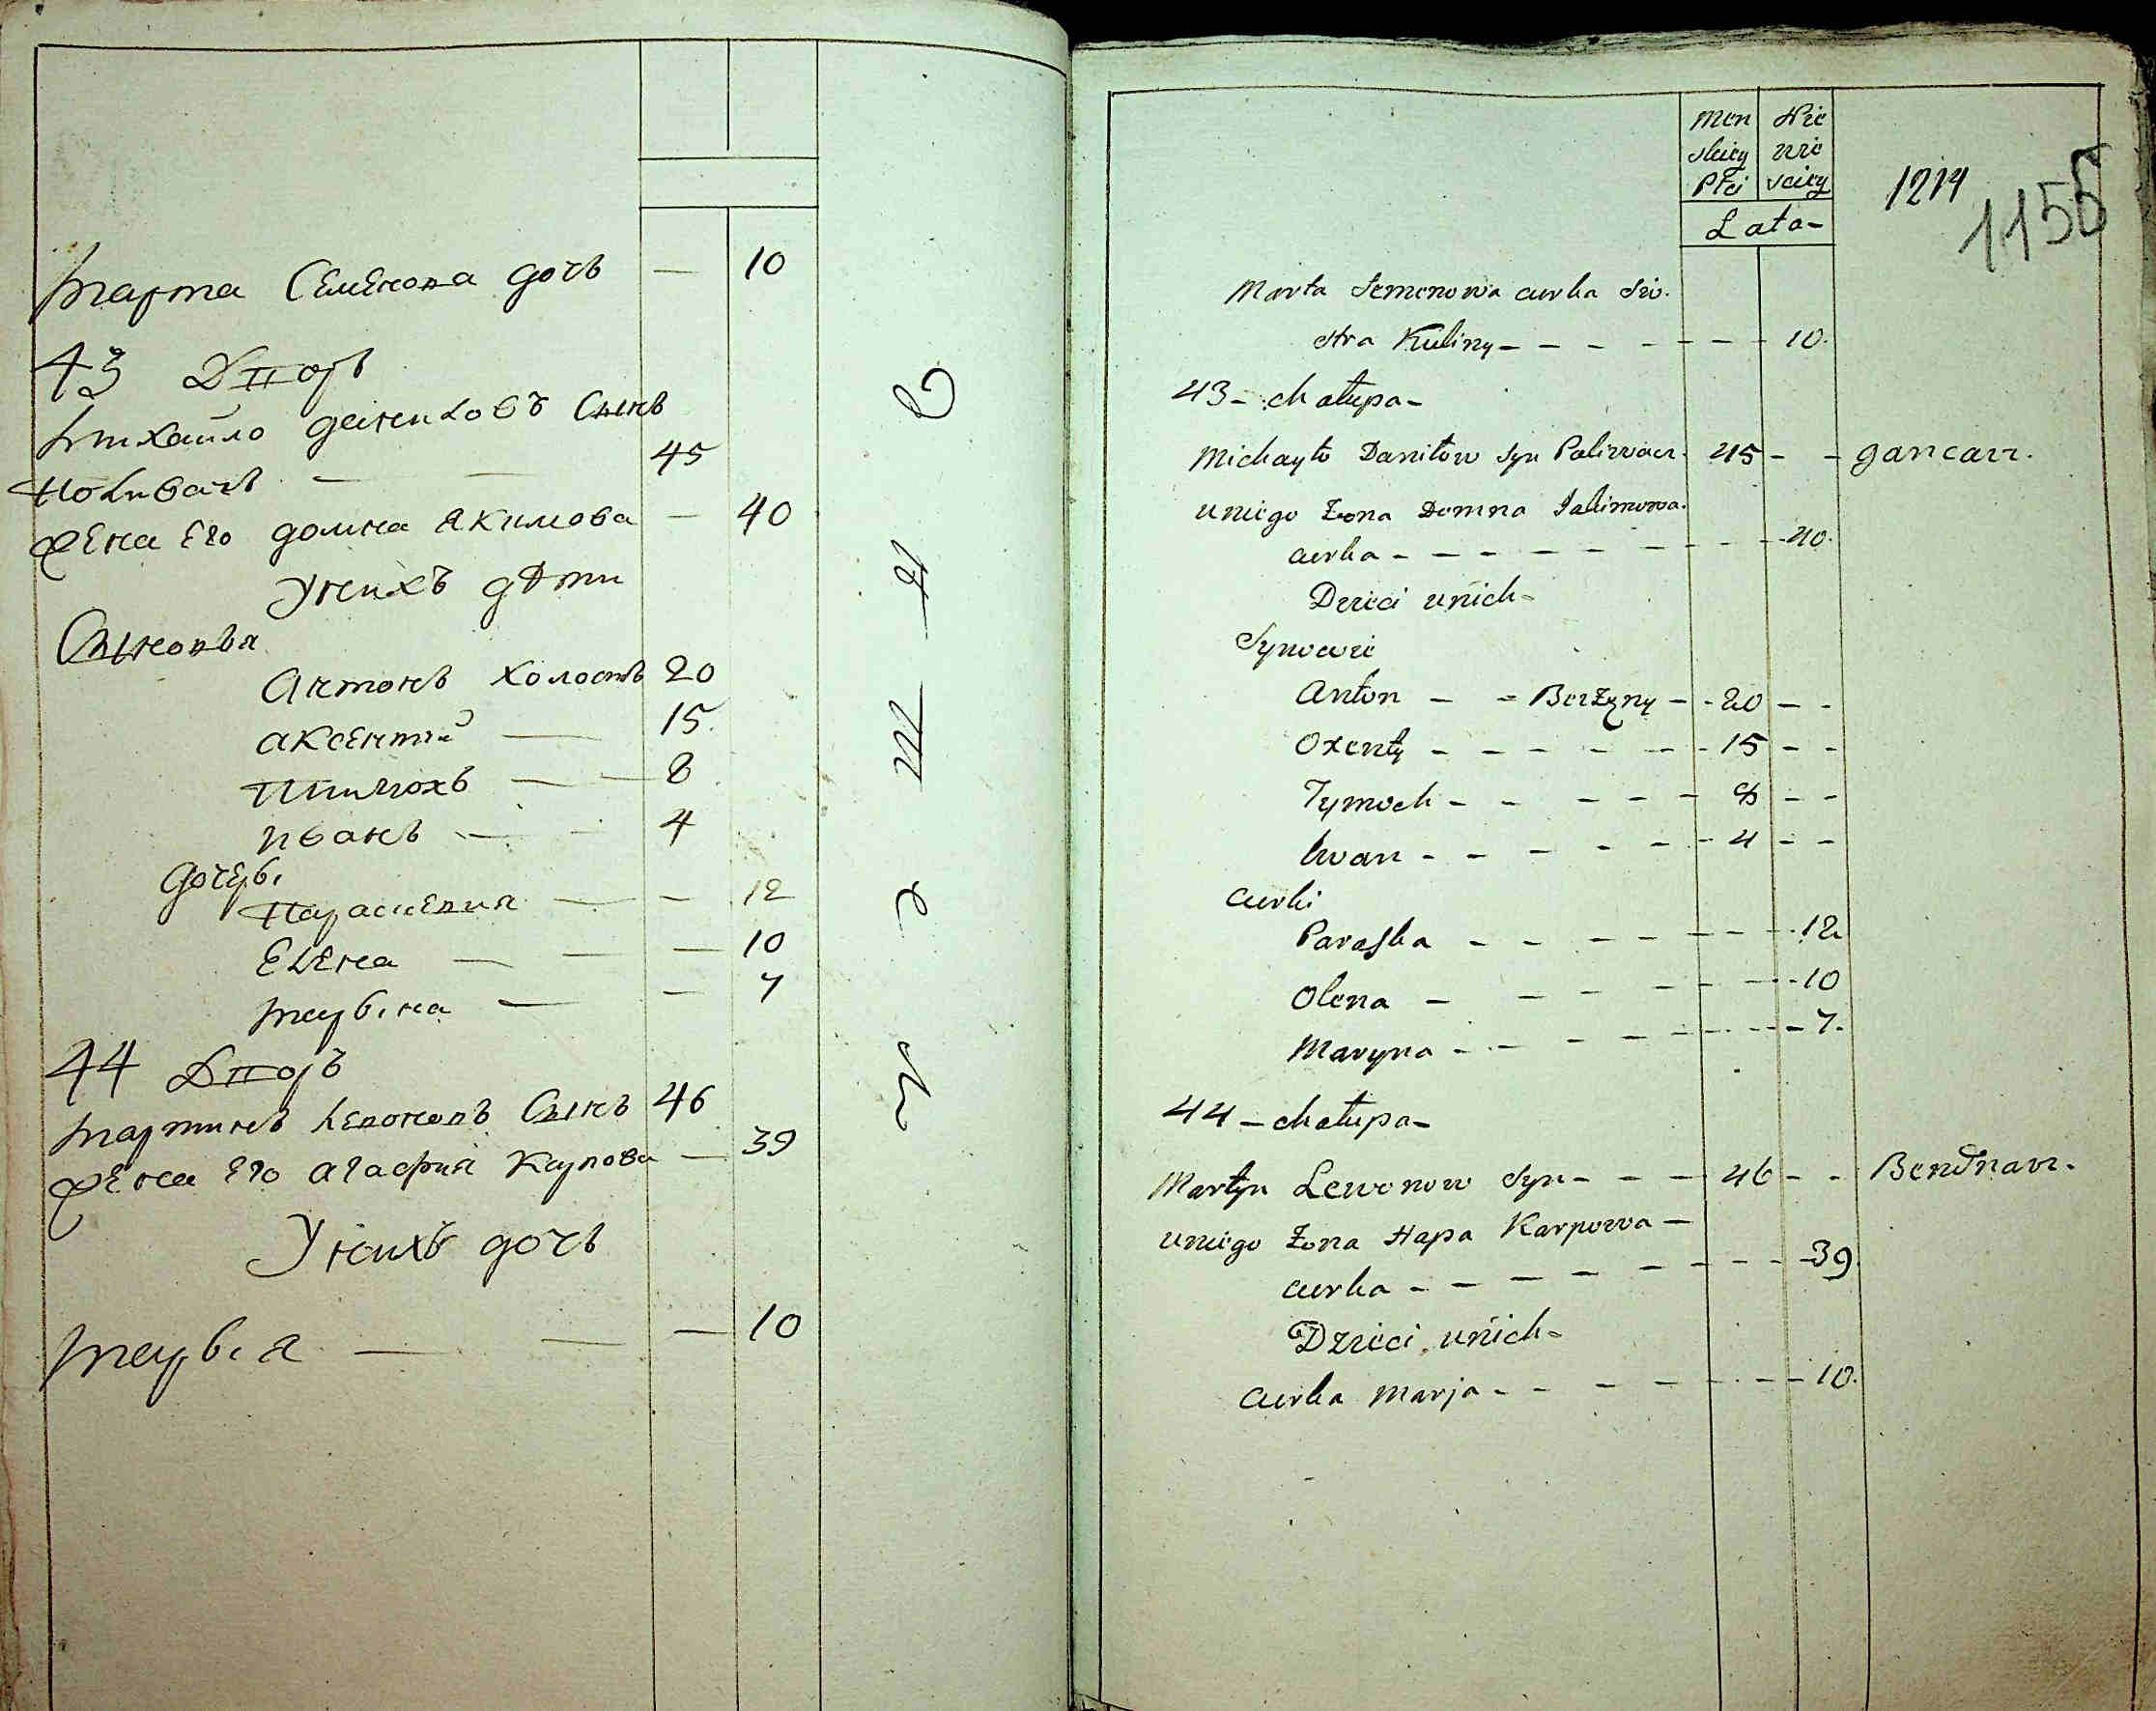 Марта Семенова дочь — 10
43 Дворъ
Михайло даниловъ Сынъ
Поливачь — — 45
Жена Его домна Якимова — 40
У нихъ дѣти
Сыновья
Антонъ холостъ 20
аксентій — 15
Тимохъ — — 8
иванъ — — 4
дочери
Параскевия — — 12
Елена — — — 10
марина — — 7
44 Дворъ
мартинъ Левоновъ Сынъ 46
Жена Его агафия Карпова — 39
У нихъ дочь
мария — — — 10
Men skiey Płci
Nie wie sciey
Lata-
1214
1155
Marta Semenowa curka Sio-
stra Kuliny - - - - - - 10.
43 - chałupa -
Michayło Daniłow syn Paliwacz. 45 - - gancarz.
u niego Żona Domna Jakimowa.
curka - - - - - - - - 40.
Dzieci u nich -
Synowie
Anton - - Beżżenny - - 20 - -
Oxenty - - - - - - - 15 - -
Tymoch - - - - - - 8 - -
Iwan - - - - - - - 4 - -
Curki
Paraska - - - - - - - 12
Olena - - - - - - - - 10
Maryna - - - - - - - - 7.
44 - chałupa -
Martyn Lewonow syn - - - 46 - - Bendnarz.
u niego Żona Hapa Karpowa -
curka - - - - - - - - 39
Dzieci u nich -
Curka Marja - - - - - - - 10.